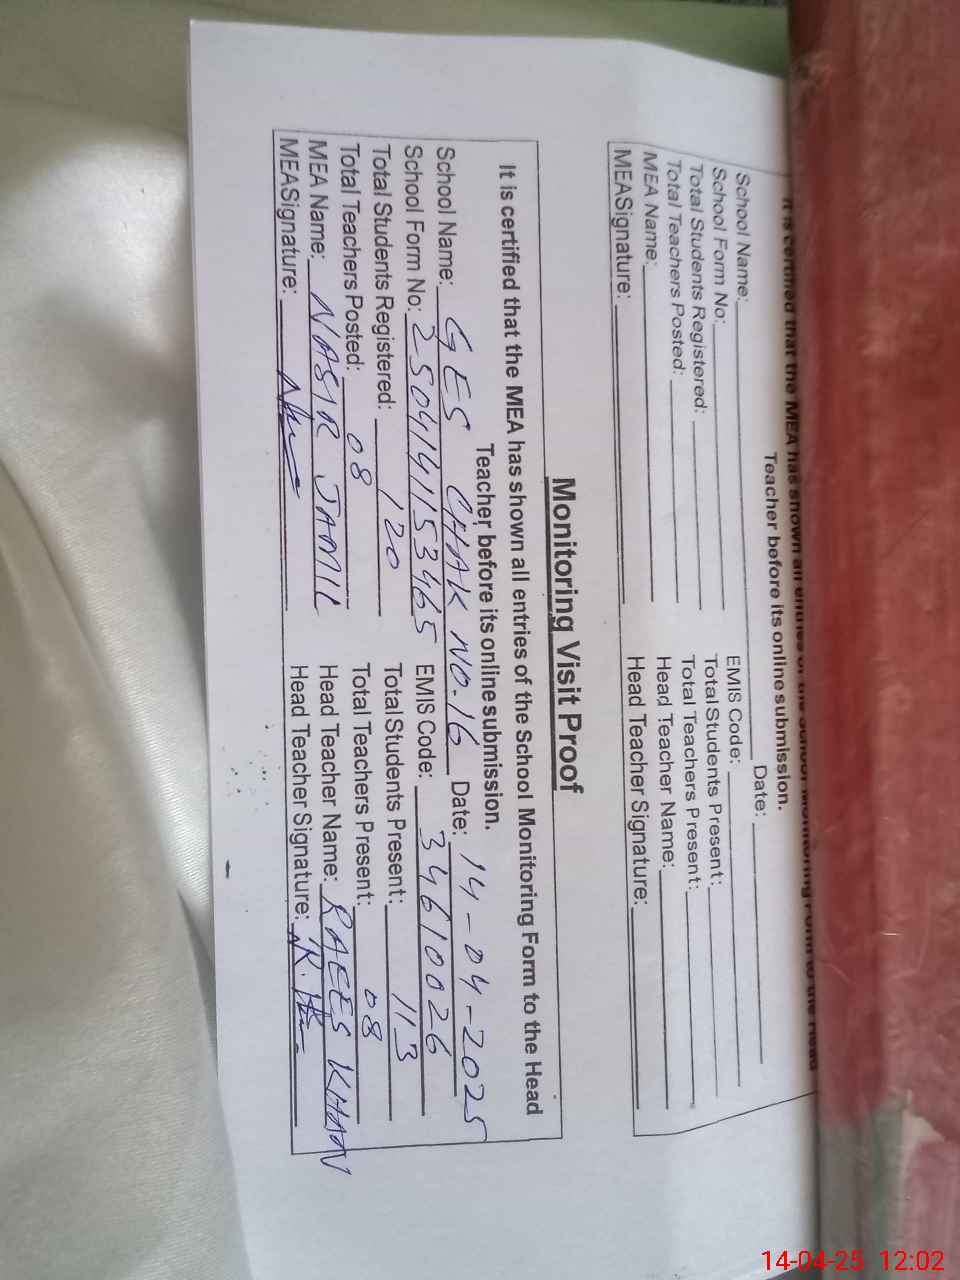 It is certified that the MEA has shown all entries of the School Monitoring Form to the Head
Teacher before its online submission.
School Name: Date:
School Form No: EMIS Code:
Total Students Registered: Total Students Present:
Total Teachers Posted: Total Teachers Present:
MEA Name: Head Teacher Name:
MEASignature: Head Teacher Signature:
Monitoring Visit Proof
It is certified that the MEA has shown all entries of the School Monitoring Form to the Head
Teacher before its online submission.
School Name: GES CHAK NO.16 Date: 14-04-2025
School Form No: 250414153465 EMIS Code: 34610026
Total Students Registered: 120 Total Students Present: 113
Total Teachers Posted: 08 Total Teachers Present: 08
MEA Name: NASIR JAMIL Head Teacher Name: RAEES KHAN
MEASignature: Head Teacher Signature:
14-04-25 12:02